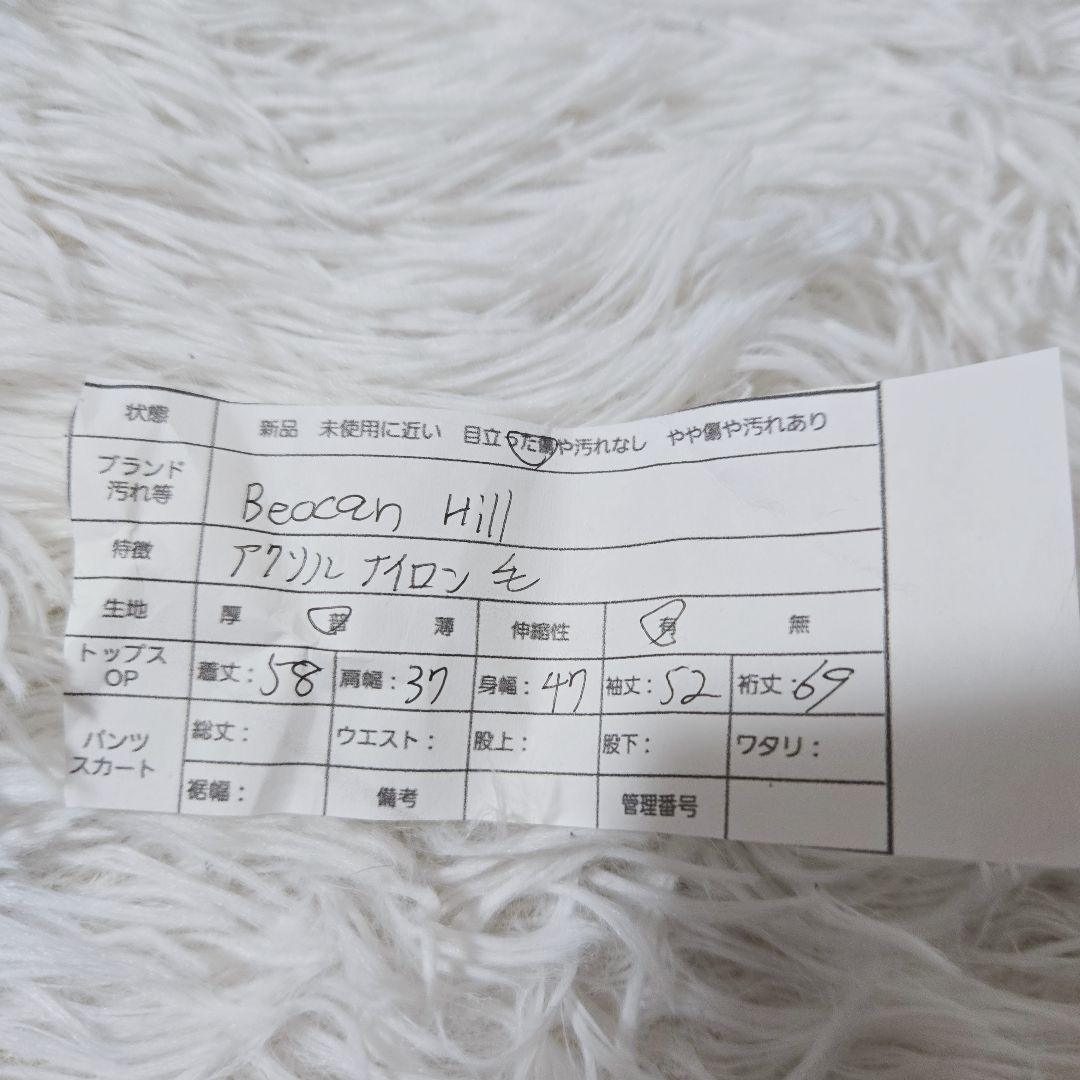 状態 新品 未使用に近い 目立った傷や汚れなし やや傷や汚れあり
ブランド
汚れ等 Beocan Hill
特徴 アクソル ナイロン 毛
生地 厚 普 薄 伸縮性 有 無
トップス
OP 着丈：58 肩幅：37 身幅：47 袖丈：52 裄丈：69
パンツ
スカート 総丈： ウエスト： 股上： 股下： ワタリ：
裾幅： 備考 管理番号